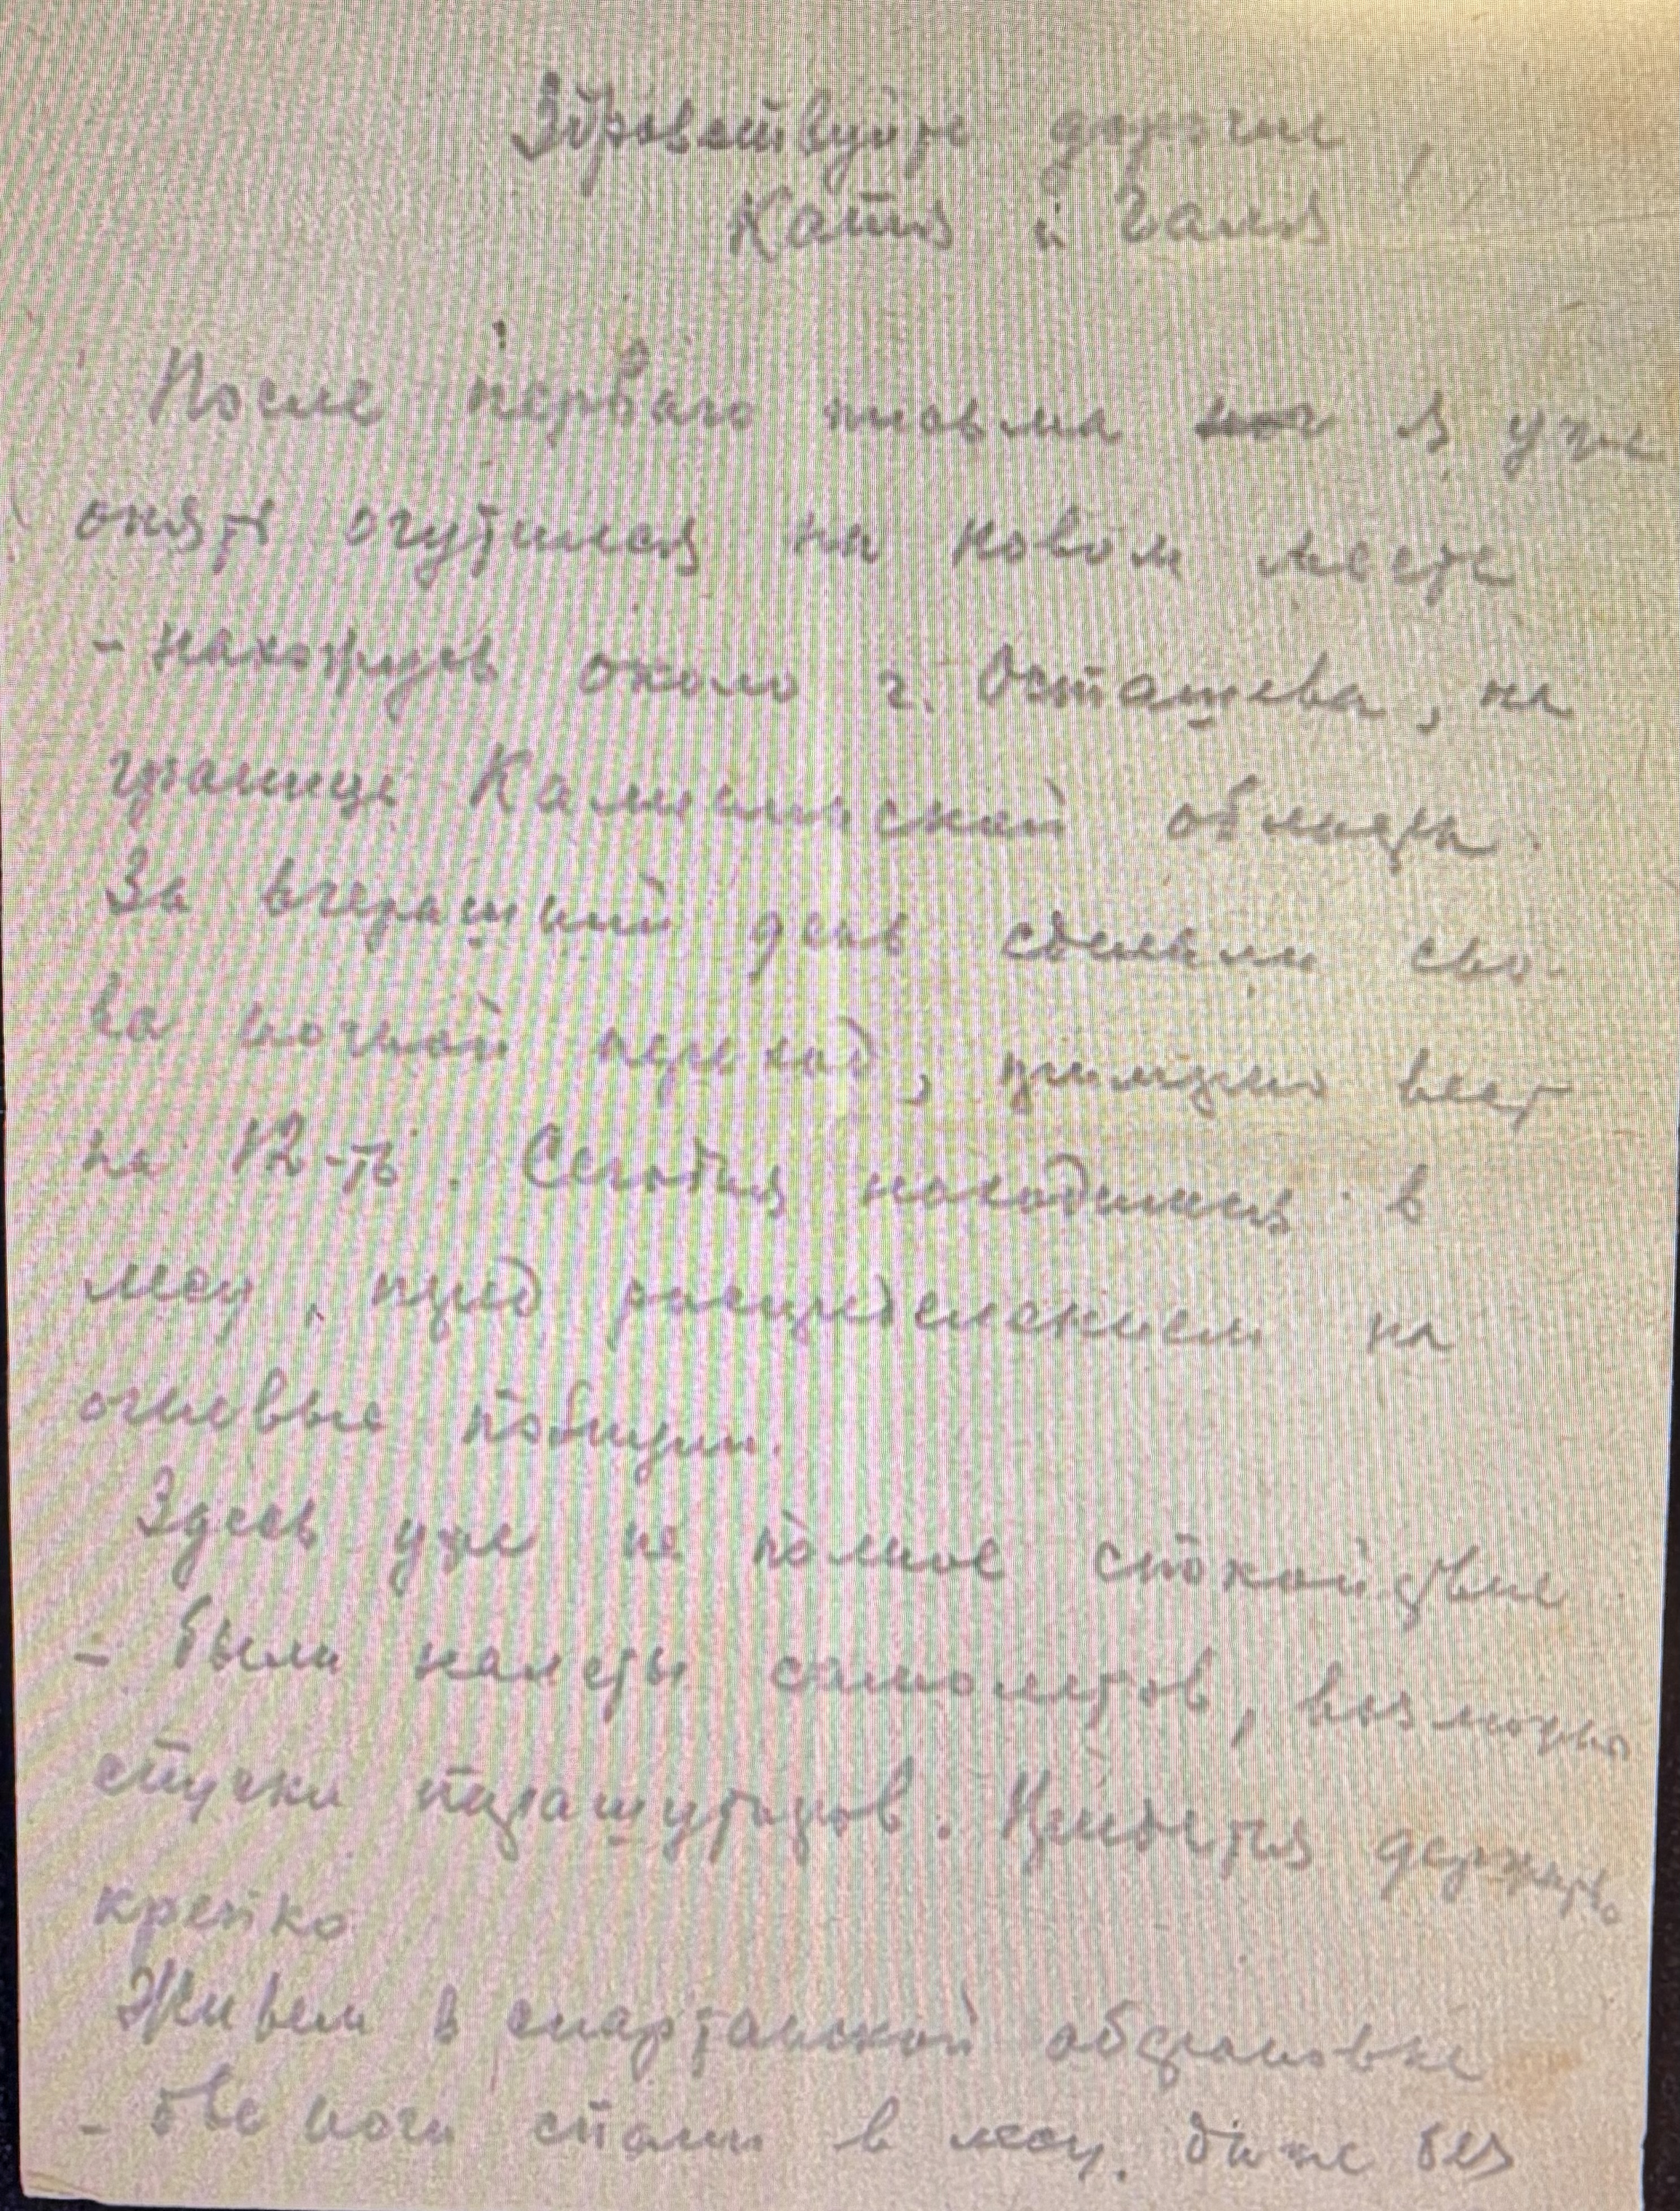 Здравствуйте дорогие,
Катя и Галя
После первого письма я уже
опять очутился на новом месте
- нахожусь около г. Осташева, на
границе Калининской области.
За вчерашний день сделали сно-
ва ночной переход, километров
на 12-ть. Сегодня находимся в
лесу, перед распределением на
огневые позиции.
Здесь уже не полное спокойствие
- были налеты самолетов, возможны
спуски парашутистов. Придется держать
крепко
Живем в спартанской обстановке
- две ночи спали в лесу. даже без